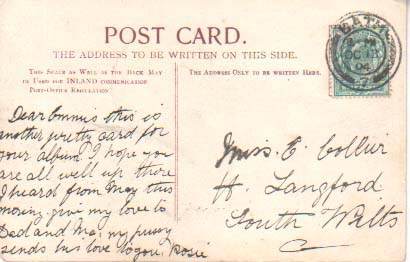 POST CARD.
THE ADDRESS TO BE WRITTEN ON THIS SIDE.
THIS SPACE AS WELL AS THE BACK MAY
BE USED FOR INLAND COMMUNICATION
POST-OFFICE REGULATION
THE ADDRESS ONLY TO BE WRITTEN HERE.
BATH
OC
04
Dear Emmis this is
another pretty card for
your album. I hope you
are all well up there
I heard from May this
moning give my love to
Dad and Ma, my pussy
sends his love to you. Rosie
Miss. E. Collier
H. Langford
South Wilts